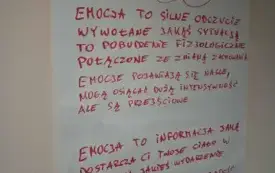 EMOCJA TO SILNE ODCZUCIE
WYWOŁANE JAKĄŚ SYTUACJĄ
TO POBUDZENIE FIZJOLOGICZNE
POŁĄCZONE ZE ZMIANĄ ZACHOWANIA
EMOCJE POJAWIAJĄ SIĘ NAGLE,
MOGĄ OSIĄGAĆ DUŻĄ INTENSYWNOŚĆ
ALE SĄ PRZEJŚCIOWE
EMOCJA TO INFORMACJA JAKĄ
DOSTARCZA CI TWOJE CIAŁO W
JAKIEŚ WYDARZENIE